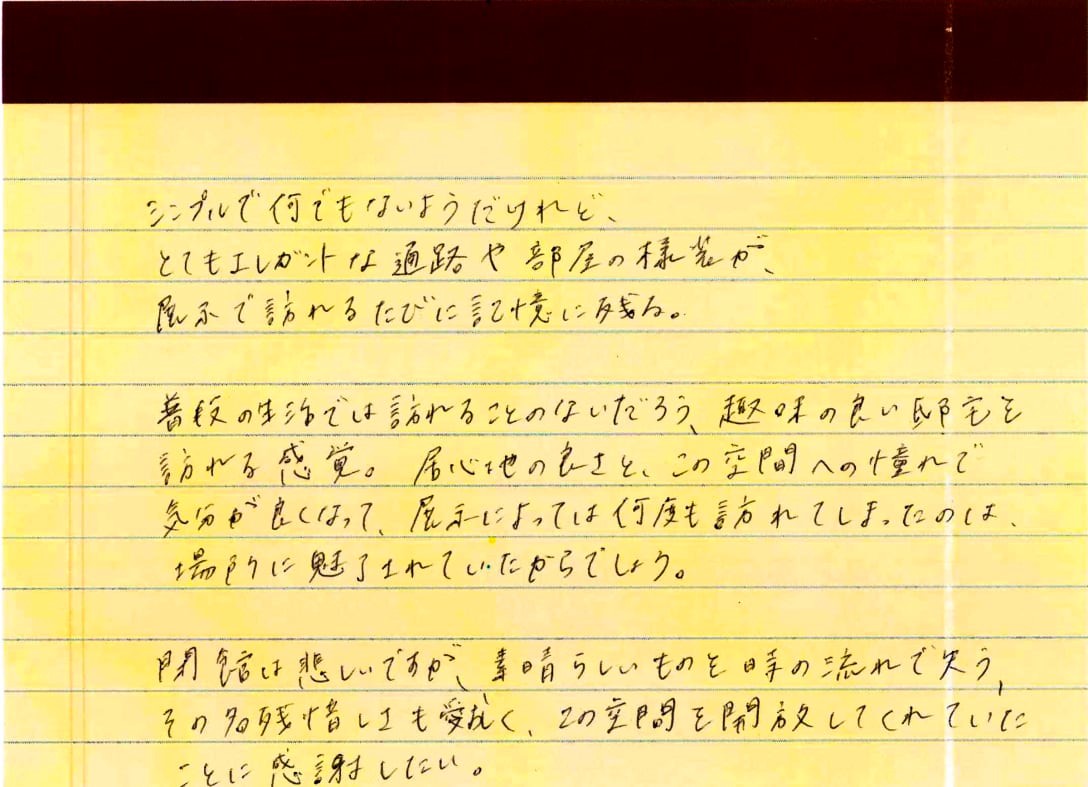 シンプルで何でもないようだけれど、
とてもエレガントな通路や部屋の様装が、
展示で訪れるたびに記憶に残る。
普段の生活では訪れることのないだろう、趣味の良い邸宅を
訪れる感覚。居心地の良さと、この空間への憧れで
気分が良くなって、展示によっては何度も訪れてしまったのは、
場所に魅了されていたからでしょう。
閉館は悲しいですが、素晴らしいものを時の流れで失う、
その名残惜しさも愛おしく、この空間を開放してくれていた
ことに感謝したい。